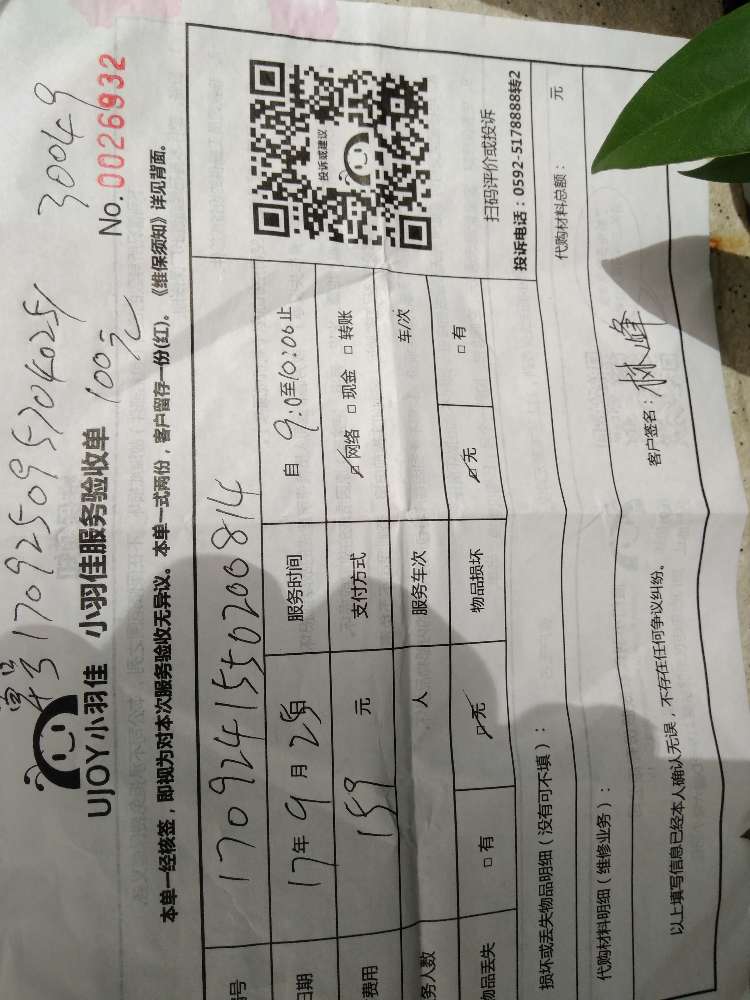 单号17092509570402​51 30049
100元
UJOY小羽佳 小羽佳服务验收单 No.0026932
本单一经核签，即视为对本次服务验收无异议。本单一式两份，客户留存一份(红)。《维保须知》详见背面。
号 1709241550200814
日期 17年9月25日 服务时间 自9:0至10:06止
费用 159元 支付方式 网络 □现金 □转账
务人数 人 服务车次 车/次
物品丢失 □有 无 物品损坏 无 □有
投诉或建议
扫码评价或投诉
投诉电话：0592-5178888转2
损坏或丢失物品明细（没有可不填）：
代购材料明细（维修业务）： 代购材料总额： 元
以上填写信息已经本人确认无误，不存在任何争议纠纷。 客户签名：林峰